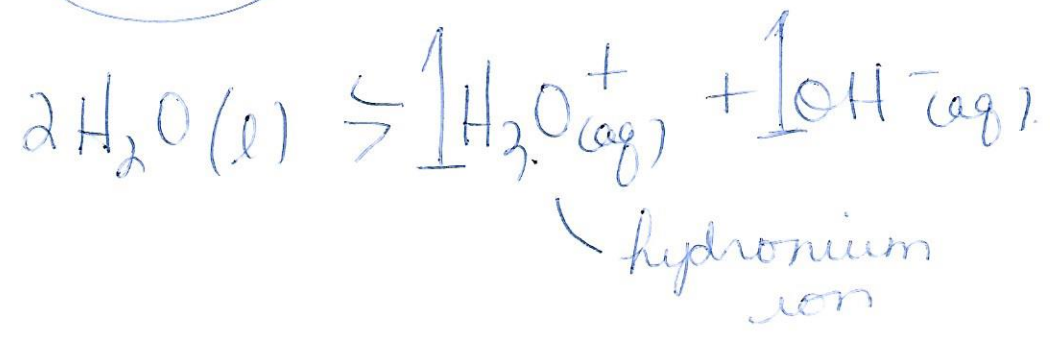 2H₂O(l) ⇌ 1H₃O⁺(aq) + 1OH⁻(aq).
hydronium
ion